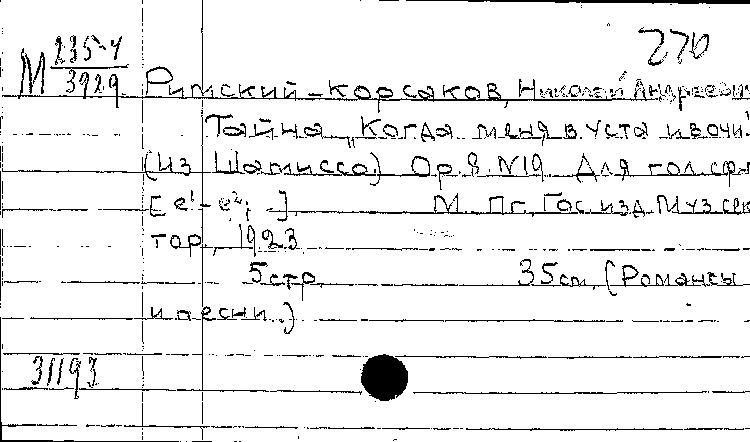 270
М 235-4
3929
Римский-Корсаков, Николай Андреевич
Тайна „Когда меня в уста и в очи"
(Из Шамиссо) Op. 8 N 19 Для гол. с фп
[e¹-e²; -]. М. Пг. Гос. изд. Муз. сек
тор, 1923
5 стр. 35 см. (Романсы
и песни.)
31193